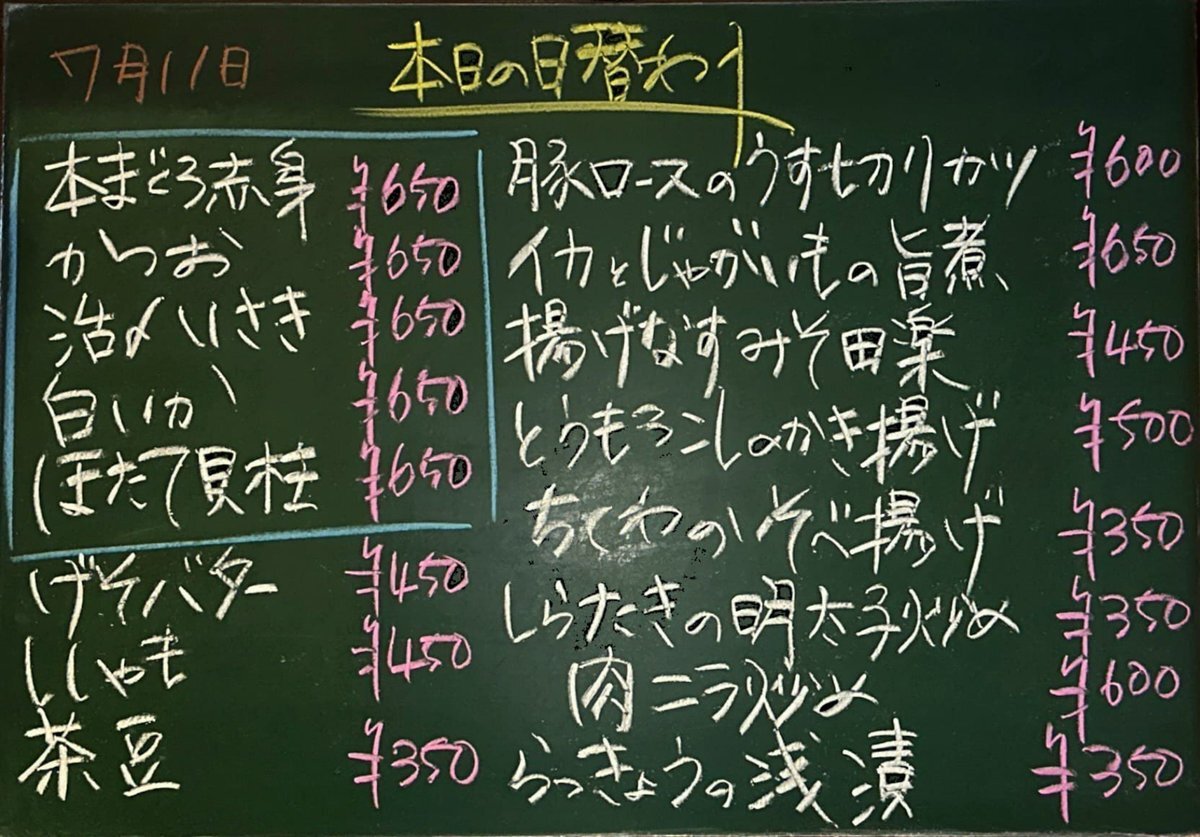 7月11日
本日の日暦わり
本まぐろ赤身 ¥650
かつお ¥650
活〆いさき ¥650
白いか ¥650
ほたて貝柱 ¥650
げそバター ¥450
ししゃも ¥450
茶豆 ¥350
豚ロースのうす切りカツ ¥600
イカとじゃがいもの旨煮 ¥650
揚げなすみそ田楽 ¥450
とうもろこしのかき揚げ ¥500
ちくわのいそべ揚げ ¥350
しらたきの明太子炒め ¥350
肉ニラ炒め ¥600
らっきょうの浅漬 ¥350